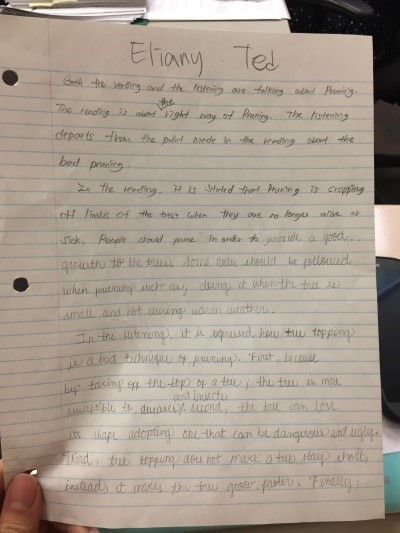 Eliany Ted
Both the reading and the listening are talking about Pruning.
The reading is about the right way of Pruning. The listening
departs from the point made in the reading about the
bad pruning.
In the reading, it is stated that Pruning is cropping
off limbs of the trees when they are no longer alive or
sick. People should prune in order to provide a good
growth to the trees. Some rules should be followed
when prunning such as, doing it when the tree is
small and not during warm weather.
In the listening, it is expressed how tree topping
is a bad technique of prunning. First, because
by taking off the top of a tree, the tree is more
susceptible to diseases and insects. Second, the tree can lose
its shape adopting one that can be dangerous and ugly.
Third, tree topping does not make a tree stay short,
instead, it makes the tree grow faster. Finally,